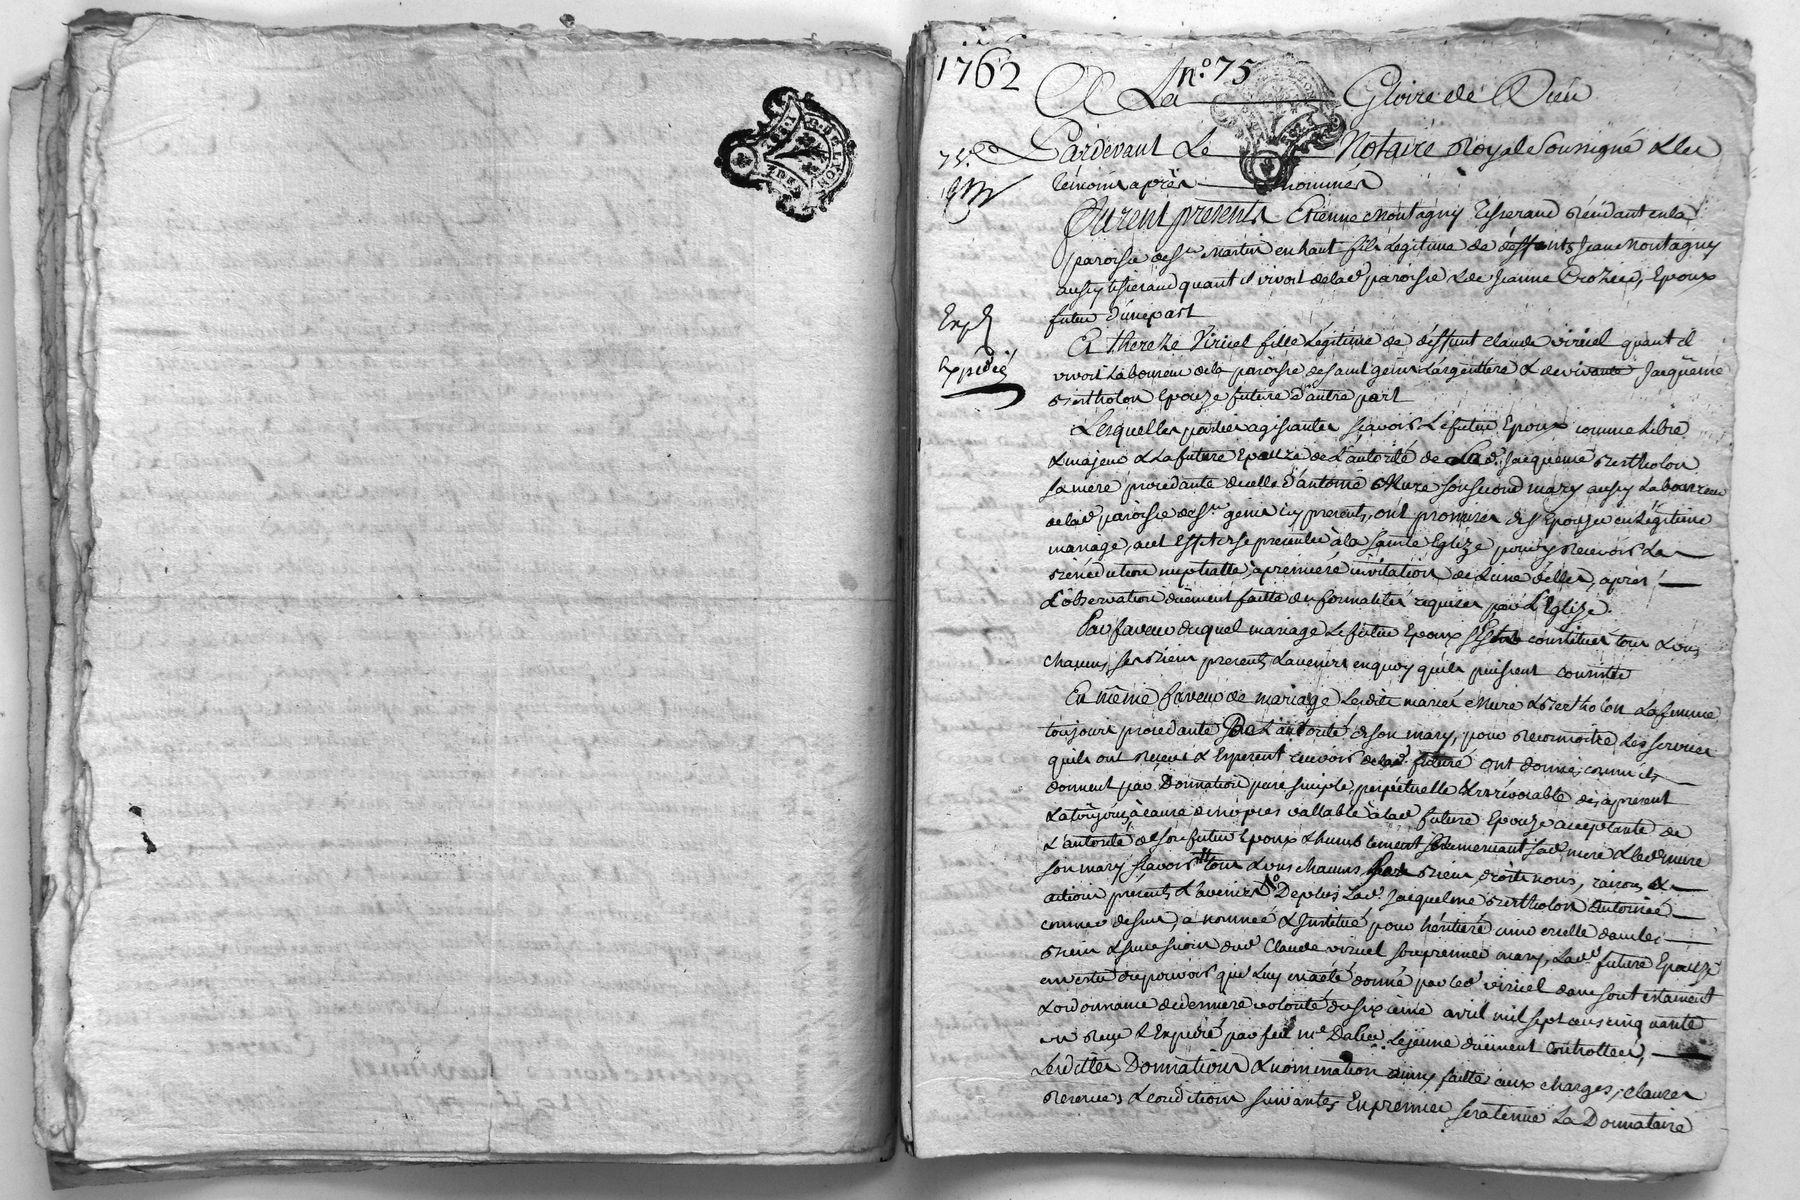 1762
n.º 75
A La Gloire de Dieu
Pardevant Le Notaire Royal Soussigné & les
temoins après nommés
furent presents Etienne Montagny tisserand residant en la
paroisse de St Martin en haut fils Légitime de deffunts Jean Montagny
aussy tisserand quant il vivoit de lad paroisse & de Jeanne Crozier, Epoux
futur d'une part
Et thereze Viricel fille Légitime de deffunt claude viricel quant il
vivoit Laboureur de la paroisse de saint genis L'argentiere & de vivante Jacquême
Bertholon Epouze future d'autre part
Lesquelles parties agissantes sçavoir Le futur Epoux comme Libre
& majeur & La future Epouze de L'autorité de Lad. Jacquême Bertholon
sa mere procedante de celle d'antoine Mure son second mary aussy Laboureur
de lad paroisse de St genis icy presents, ont promis de s'Epouzer en Légitime
mariage, a cet Effet se presenter à la sainte Eglize pour y recevoir La
Bénédiction nuptialle, à premiere invitation de L'une d'elles, après
L'observation düement faitte des formalités requises par L'Eglize.
En faveur duquel mariage Le futur Epoux s'Est constitué tous & uns
chacuns, ses Biens presents & avenirs en quoy qu'ils puissent consister
En même faveur de mariage Lesdits mariés Mure & Bertholon La femme
toujours procedante de L'autorité de son mary, pour reconnoitre Les services
quils ont reçus & Esperent recevoir de lad. future ont donné, comme ils
donnent par Donnation pure simple, perpétuelle & irrévocable dès à present
& à toujours, à cause de nopces vallable à lad future Epouze acceptante de
L'autorité de son futur Epoux & humblement remerciant sad mere & led mure
son mary sçavoir tous & uns chacuns Biens, droits noms, raisons &
actions présents & avenirs De plus Lad. Jacquême Bertholon autorisée
comme dessus, a nommée & Institué pour héritiere universelle dans les
Biens & succession dud Claude viricel son premier mary, Lad future Epouze
en vertu du pouvoir qui Luy en a été donné par led viricel dans son testament
& ordonnance de derniere volonté du sixieme avril mil sept cens cinquante
un reçu & Expedié par feu me Dalier Lejeune düement controllée,
Lesdittes Donnation & nomination ainsy faitte aux charges, clauses
reserves & conditions suivantes, En premier sera tenüe La Donnataire
75.
Exp.
Expedié